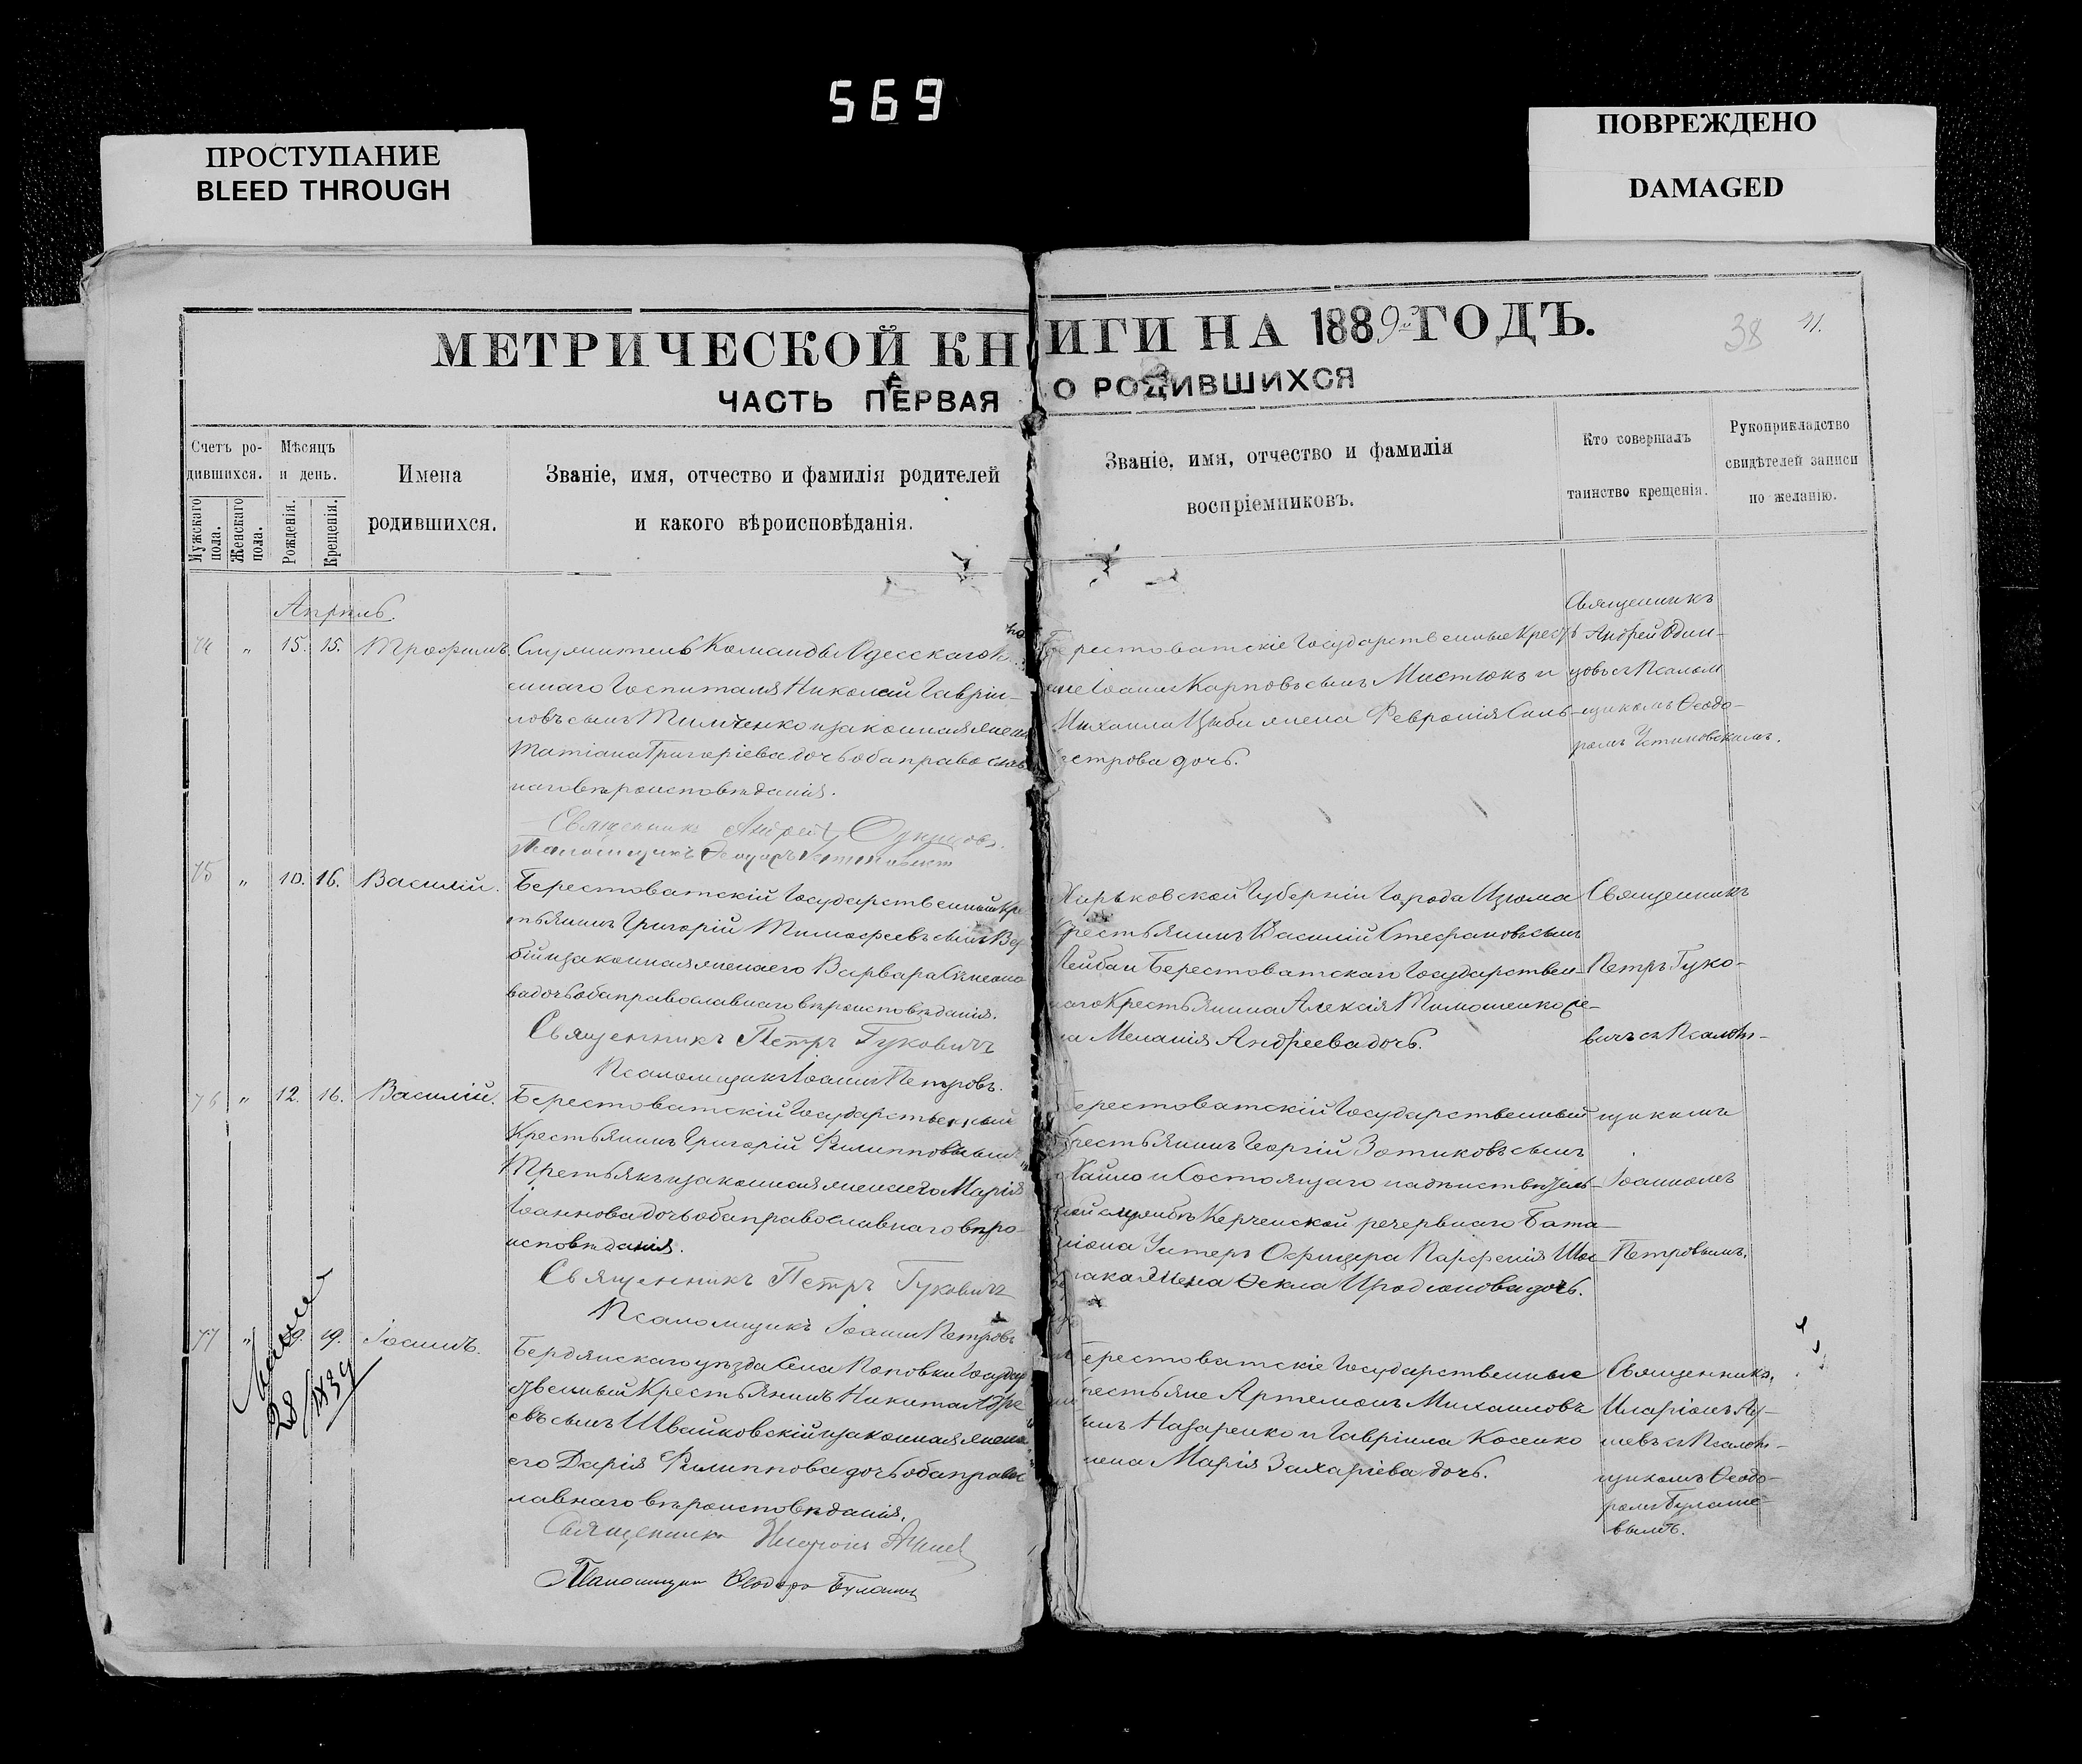 569
ПРОСТУПАНИЕ
BLEED THROUGH
ПОВРЕЖДЕНО
DAMAGED
МЕТРИЧЕСКОЙ КНИГИ НА 1889й ГОДЪ.
38
ЧАСТЬ ПЕРВАЯ О РОДИВШИХСЯ
Счетъ ро-
дившихся.
Мужскаго
пола.
Женскаго
пола.
Мѣсяцъ
и день.
Рожденія.
Крещенія.
Имена
родившихся.
Званіе, имя, отчество и фамилія родителей
и какого вѣроисповѣданія.
Званіе, имя, отчество и фамилія
воспріемниковъ.
Кто совершалъ
таинство крещенія.
Рукоприкладство
свидѣтелей записи
по желанію.
Апрѣль
74 " 15. 15. Трофимъ.
Служитель Команды Одесскаго
Госпиталя Николай Гаврiи-
ловъ сынъ Тимченко и законная жена
Татіана Григоріева дочь оба православ
наго вѣроисповѣданія.
Священникъ Андрей
Псаломщикъ Ѳеодоръ
Берестоватскіе Государственные Крестья
Іоаннъ Карповъ сынъ Мистюкъ и
Михаила Цыбы жена Февронія Силь-
естрова дочь.
Священникъ
Андрей Один-
цовъ съ Псалом
щикомъ Ѳеодо-
ромъ Устиновскимъ.
75 " 10. 16. Василій.
Берестоватскій Государственный Кре
стьянинъ Григорій Тимофеевъ сынъ Вер
бій и законная жена его Варвара Симеоно
ва дочь оба православнаго вѣроисповѣданія.
Священникъ Петръ Гуковичъ
Псаломщикъ Іоаннъ Петровъ.
Харьковской Губерніи Города Изюма
Крестьянинъ Василій Стефановъ сынъ
Лейба и Берестоватскаго Государствен-
наго Крестьянина Алексія Тимошенко же-
на Меланія Андреева дочь.
Священникъ
Петръ Гуко-
вичъ съ Псалом-
щикомъ
Іоанномъ
Петровымъ.
76 " 12. 16. Василій.
Берестоватскій Государственный
Крестьянинъ Григорій Филипповъ сынъ
Третьякъ и законная жена его Марія
Іоаннова дочь оба православнаго вѣро
исповѣданія.
Священникъ Петръ Гуковичъ
Псаломщикъ Іоаннъ Петровъ
Берестоватскій Государственный
Крестьянинъ Георгій Зотиковъ сынъ
и Состоящаго на дѣйствитель-
ной службѣ Керченской резервнаго Бата
ліона Унтеръ Офицера Парфенія
жена Ѳекла Иродіонова дочь.
77 " 19. 19. Іоаннъ.
28/IX 39
Бердянскаго уѣзда Села Поповки Государ
ственный Крестьянинъ Никита Андре
евъ сынъ Швайковскій и законная жена
его Дарія Филиппова дочь оба правос
лавнаго вѣроисповѣданія.
Священникъ Иларіонъ
Псаломщикъ Ѳеодоръ
Берестоватскіе Государственные
Крестьяне Артемонъ Михаиловъ
сынъ Назаренко и Гавріила Косенко
жена Марія Захаріева дочь.
Священникъ
Иларіонъ
съ Псалом-
щикомъ Ѳеодо-
ромъ Булаше-
вымъ.